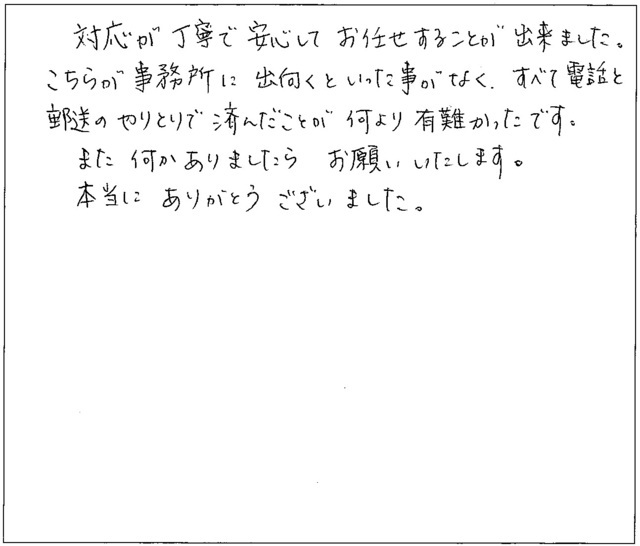 対応が丁寧で安心してお任せすることが出来ました。
こちらが事務所に出向くといった事がなく、すべて電話と
郵送のやりとりで済んだことが何より有難かったです。
また何かありましたらお願いいたします。
本当にありがとうございました。